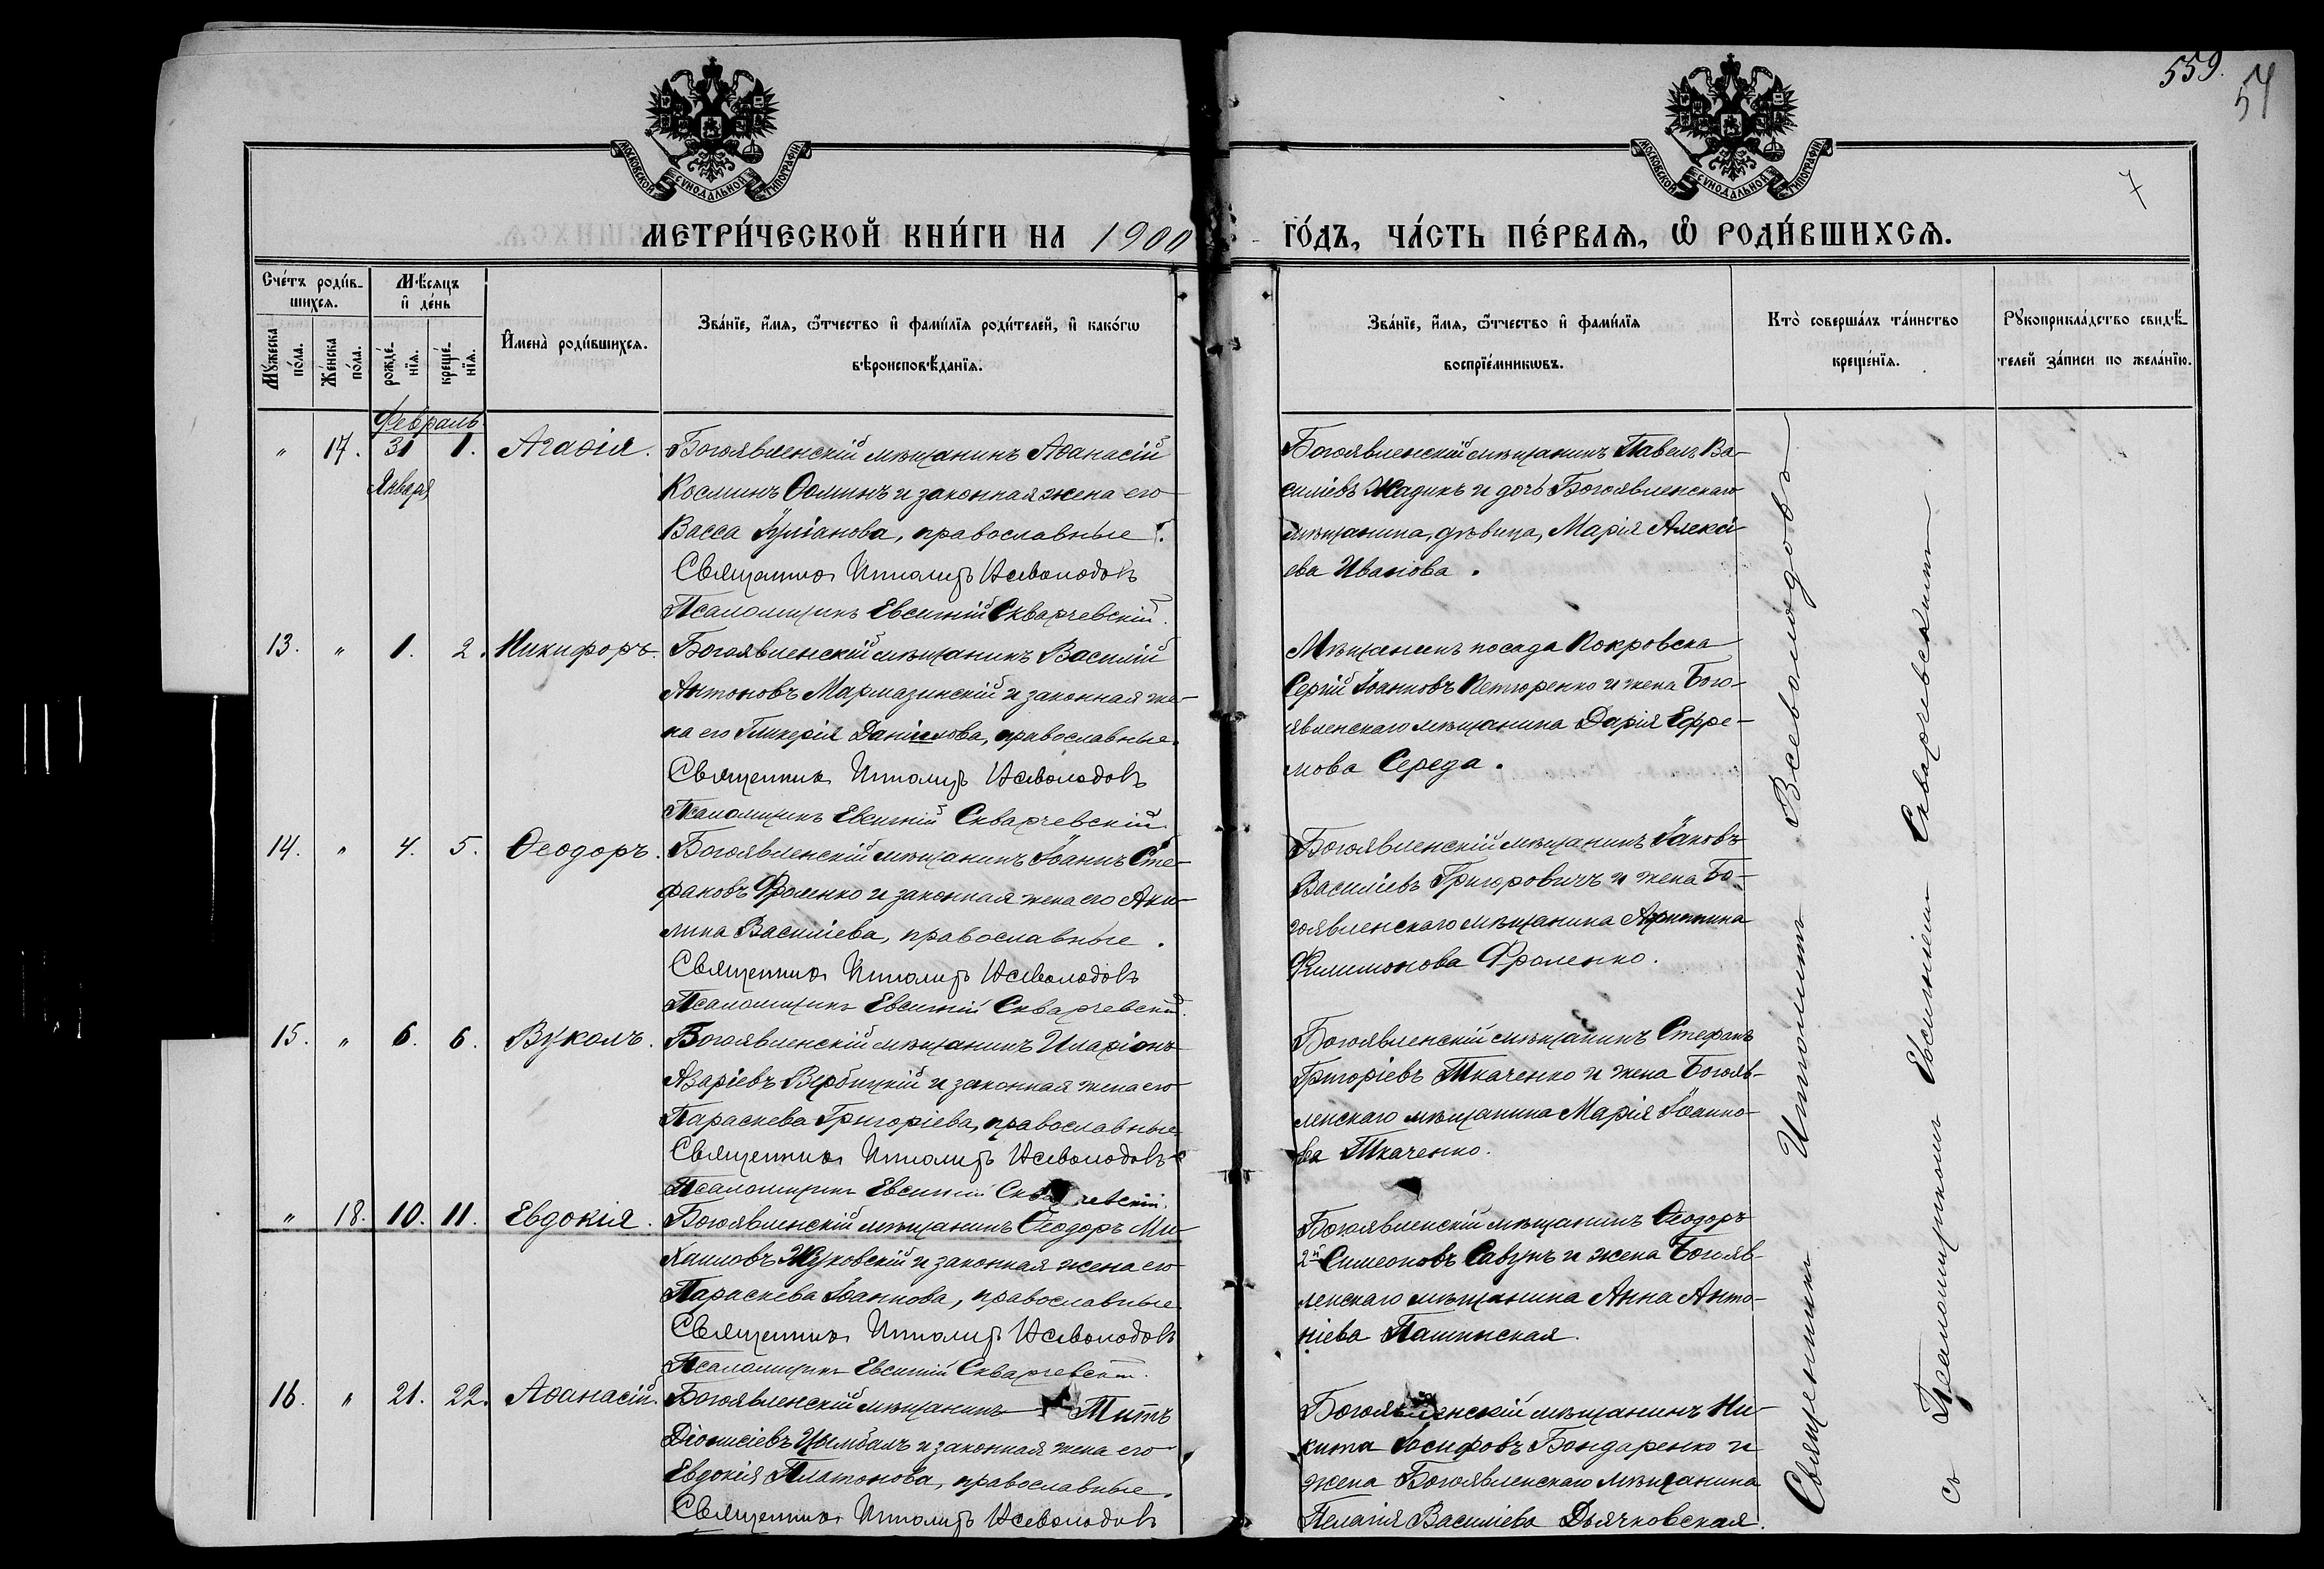 559.
54
7
МОСКОВСКОЙ СѴНОДАЛЬНОЙ ТИПОГРАФІИ
МОСКОВСКОЙ СѴНОДАЛЬНОЙ ТИПОГРАФІИ
МЕТРИ́ЧЕСКОЙ КНИ́ГИ НА 1900
ГО́ДЪ, ЧА́СТЬ ПЕ́РВАѦ, Ѽ РОДИ́ВШИХСѦ.
Сче́тъ роди́в-
шихсѧ.
Мꙋ́жеска по́ла.
Же́нска по́ла.
Мѣ́сяцъ
и҆ де́нь
рожде́-нїѧ.
креще́-нїѧ.
И҆мена̀ роди́вшихсѧ.
Зва́нїе, и҆́мѧ, ѻ҆́тчество и҆ фами́лїѧ роди́телей, и҆ како́гѡ
вѣроисповѣ́данїѧ.
Зва́нїе, и҆́мѧ, ѻ҆́тчество и҆ фами́лїѧ
воспрїе́мникѡвъ.
Кто̀ соверша́лъ та́инство
креще́нїѧ.
Рꙋкоприкла́дство свидѣ́-
телей за́писи по жела́нїю.
Февраль
" 17. 31 1. Агаѳія.
Января
Богоявленскій мѣщанинъ Аѳанасій
Косминъ Ѳоминъ и законная жена его
Васса Іуліанова, православные.
Священникъ Ипполитъ Всеволодовъ
Псаломщикъ Евсигній Скварчевскій.
Богоявленскій мѣщанинъ Павелъ Ва-
силіевъ Жадикъ и дочь Богоявленскаго
мѣщанина, дѣвица, Марія Алексі-
ева Иванова.
13. " 1. 2. Никифоръ.
Богоявленскій мѣщанинъ Василій
Антоновъ Мармазинскій и законная же-
на его Гликерія Даніилова, православные.
Священникъ Ипполитъ Всеволодовъ
Псаломщикъ Евсигній Скварчевскій
Мѣщанинъ посада Покровска
Сергій Іоанновъ Петюренко и жена Бого-
явленскаго мѣщанина Дарія Ефре-
мова Середа.
14. " 4. 5. Ѳеодоръ.
Богоявленскій мѣщанинъ Іоаннъ Сте-
фановъ Фроленко и законная жена его Аки-
лина Василіева, православные.
Священникъ Ипполитъ Всеволодовъ
Псаломщикъ Евсигній Скварчевскій.
Богоявленскій мѣщанинъ Іаковъ
Василіевъ Григоровичъ и жена Бо-
гоявленскаго мѣщанина
Филимонова Фроленко.
15. " 6. 6. Вуколъ.
Богоявленскій мѣщанинъ Иларіонъ
Азаріевъ Вербицкій и законная жена его
Параскева Григоріева, православные.
Священникъ Ипполитъ Всеволодовъ
Псаломщикъ Евсигній Скварчевскій.
Богоявленскій мѣщанинъ Стефанъ
Григоріевъ Ткаченко и жена Богояв-
ленскаго мѣщанина Марія Іоанно-
ва Ткаченко.
" 18. 10. 11. Евдокія.
Богоявленскій мѣщанинъ Ѳеодоръ Ми-
хаиловъ Жуковскій и законная жена его
Параскева Іоаннова, православные
Священникъ Ипполитъ Всеволодовъ
Псаломщикъ Евсигній Скварчевскій.
Богоявленскій мѣщанинъ Ѳеодоръ
2й Симеоновъ Савунъ и жена Богояв-
ленскаго мѣщанина Анна Анто-
ніева
16. " 21. 22. Аѳанасій.
Богоявленскій мѣщанинъ Титъ
Діонисіевъ Цымбалъ и законная жена его
Евдокія Платонова, православные.
Священникъ Ипполитъ Всеволодовъ
Богоявленскій мѣщанинъ Ни-
кита Іосифовъ Бондаренко и
жена Богоявленскаго мѣщанина
Пелагія Василіева Дьячковская.
Священникъ Ипполитъ Всеволодовъ
съ Псаломщикомъ Евсигніемъ Скварчевскимъ